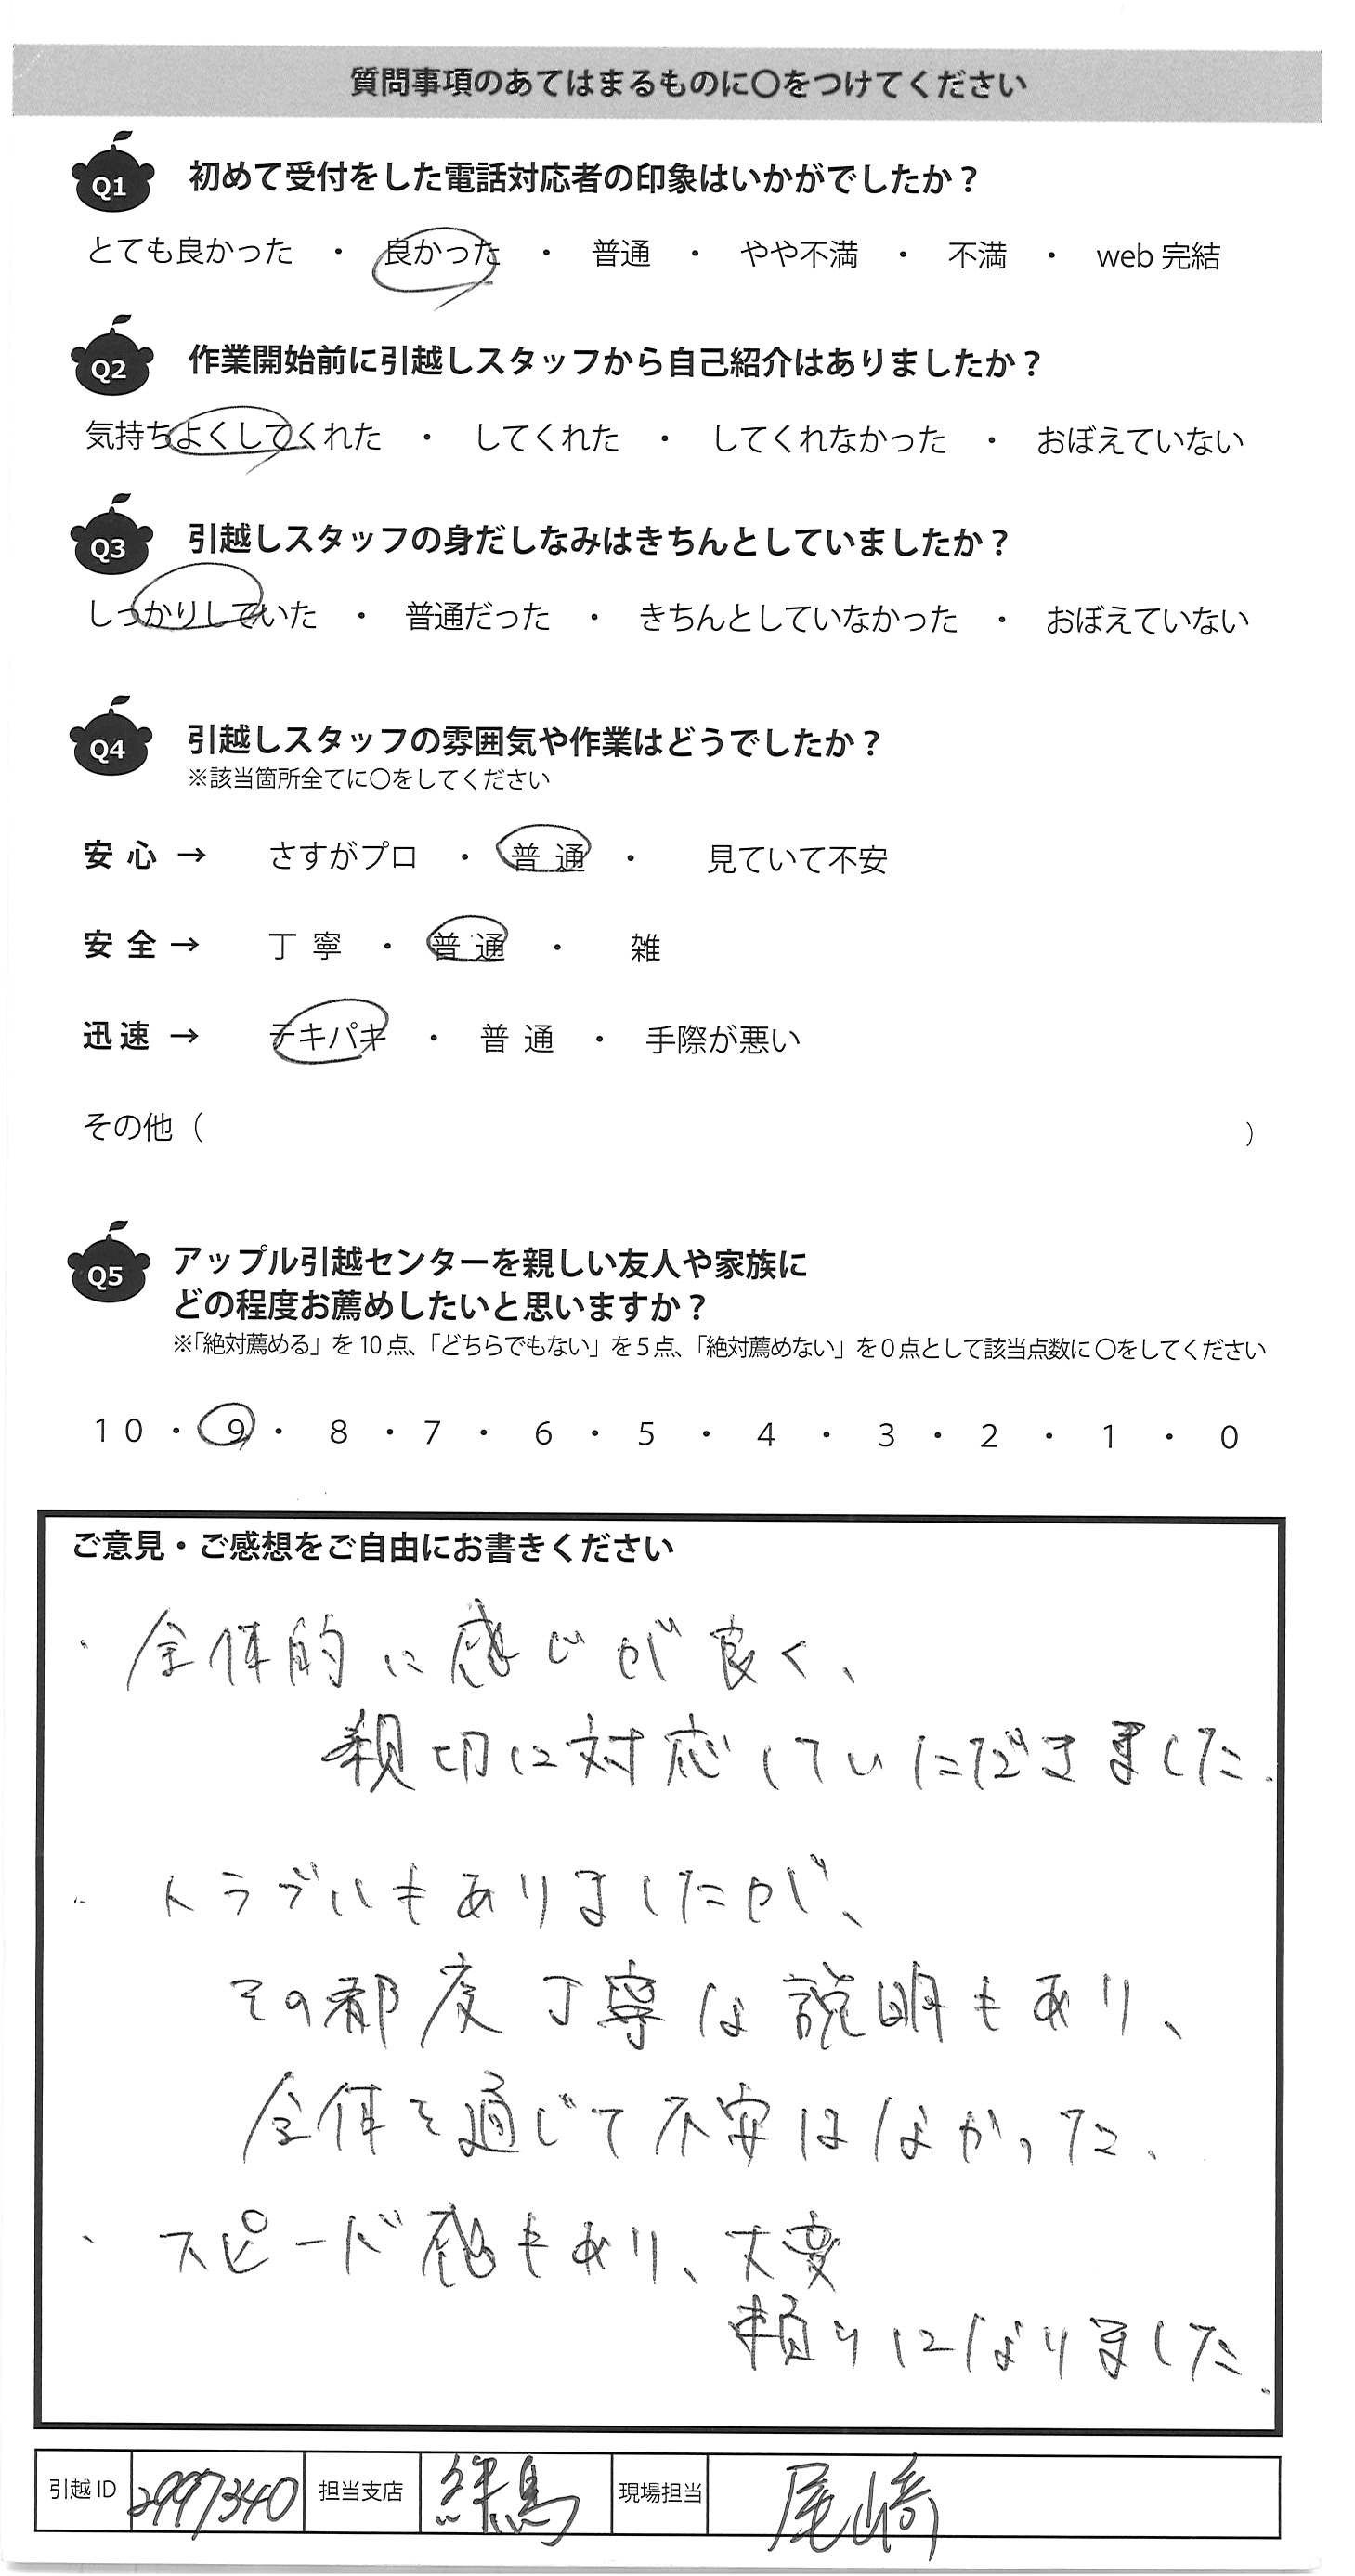 質問事項のあてはまるものに〇をつけてください
Q1 初めて受付をした電話対応者の印象はいかがでしたか？
とても良かった ・ 良かった ・ 普通 ・ やや不満 ・ 不満 ・ web 完結
Q2 作業開始前に引越しスタッフから自己紹介はありましたか？
気持ちよくしてくれた ・ してくれた ・ してくれなかった ・ おぼえていない
Q3 引越しスタッフの身だしなみはきちんとしていましたか？
しっかりしていた ・ 普通だった ・ きちんとしていなかった ・ おぼえていない
Q4 引越しスタッフの雰囲気や作業はどうでしたか？
※該当箇所全てに〇をしてください
安心 → さすがプロ ・ 普通 ・ 見ていて不安
安全 → 丁寧 ・ 普通 ・ 雑
迅速 → テキパキ ・ 普通 ・ 手際が悪い
その他（ ）
Q5 アップル引越センターを親しい友人や家族に
どの程度お薦めしたいと思いますか？
※「絶対薦める」を10点、「どちらでもない」を5点、「絶対薦めない」を0点として該当点数に〇をしてください
10 ・ 9 ・ 8 ・ 7 ・ 6 ・ 5 ・ 4 ・ 3 ・ 2 ・ 1 ・ 0
ご意見・ご感想をご自由にお書きください
・全体的に感じが良く、
親切に対応していただきました.
・トラブルもありましたが、
その都度丁寧な説明もあり、
全体を通じて不安はなかった.
・スピード感もあり、大変
頼りになりました.
引越ID 2997340 担当支店 練馬 現場担当 尾﨑